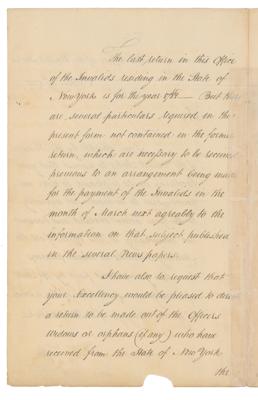 The last return in this Office
of the Invalids residing in the State of
New York is for the year — But there
are several particulars required in the
present form not contained in the former
return, which are necessary to be received
previous to an arrangement being made
for the payment of the Invalids in the
month of March next agreably to the
information on that subject published
in the several News papers.
I have also to request that
your Excellency would be pleased to
a return to be made out of the Officers
widows or orphans (if any) who have
received from the State of New York
the